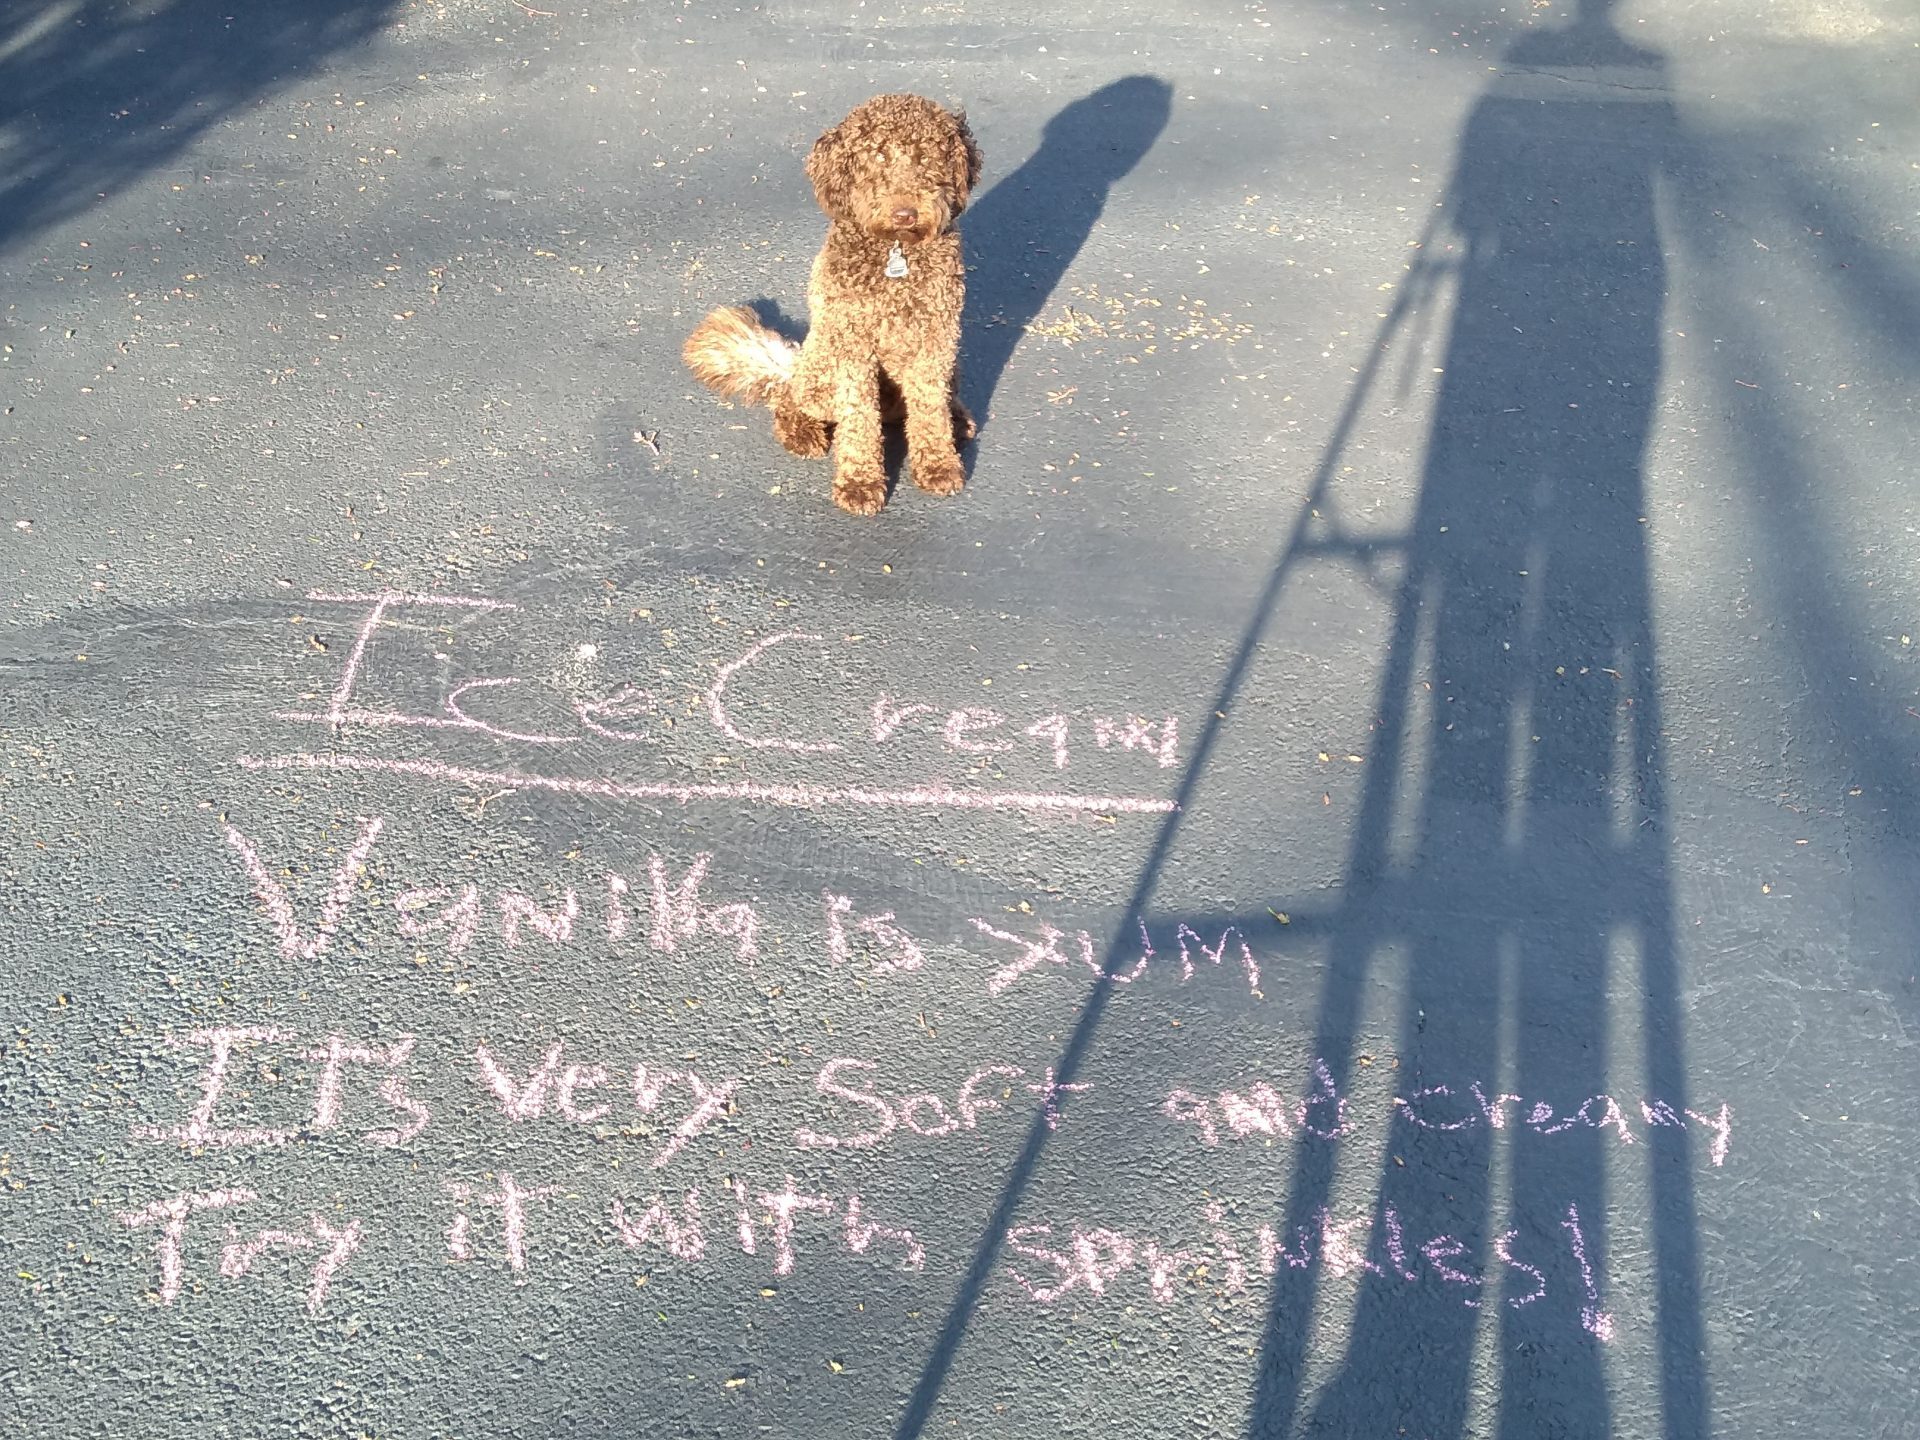 Ice Cream
Vanilla is YUM
IT's very Soft and creamy
Try iT WiTh sprinkles!